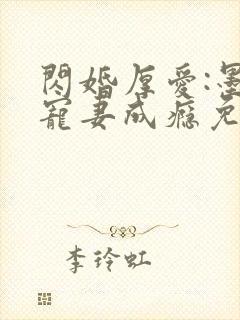 閃婚厚愛:墨
寵妻成癮免
李玲虹